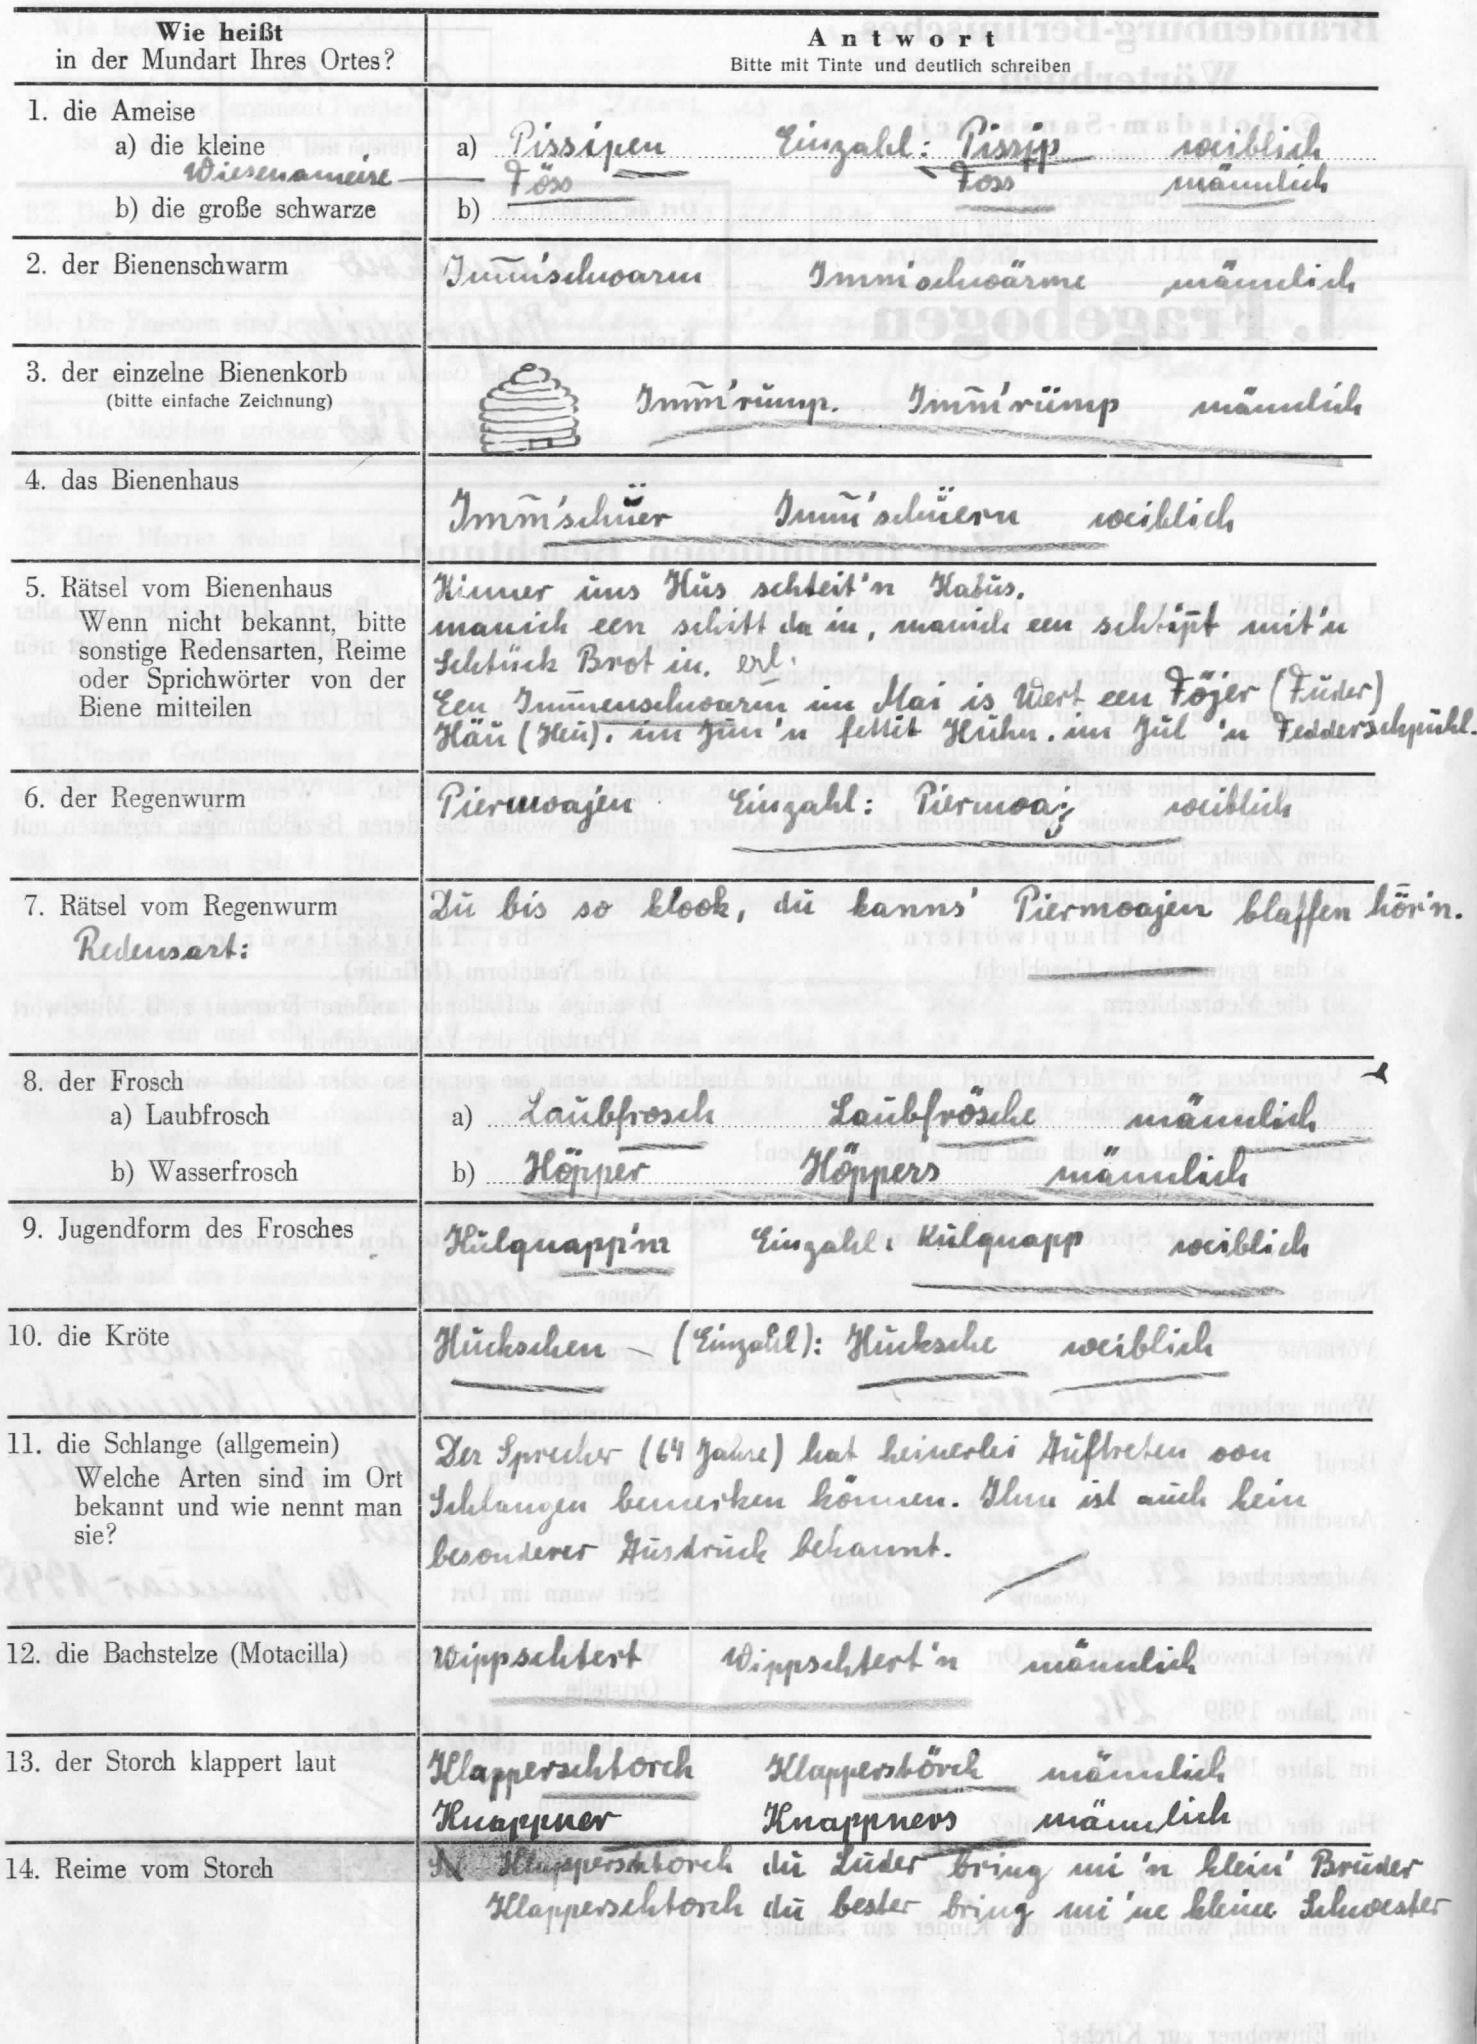 Wie heißt
in der Mundart Ihres Ortes?
Antwort
Bitte mit Tinte und deutlich schreiben
1. die Ameise
a) die kleine
a) Pissipen Einzahl: Pissip weiblich
Wiesenameise
Föss Föss männlich
b) die große schwarze
b)
2. der Bienenschwarm
Imm̄'schwarm Imm'schwärme männlich
3. der einzelne Bienenkorb
(bitte einfache Zeichnung)
Imm̄'rump. Imm̄'rümp männlich
4. das Bienenhaus
Imm̄'schüer Imm̄'schüern weiblich
5. Rätsel vom Bienenhaus
Wenn nicht bekannt, bitte
sonstige Redensarten, Reime
oder Sprichwörter von der
Biene mitteilen
Hinner uns Hus schteit'n Kabus,
manch een schitt da in, manch een schtipt mit'n
Schtück Brot in.
Een Immenschwarm im Mai is Wert een Föjer (Fuder)
Häu (Heu). im Jun 'n fettit Huhn. im Jul 'n Fedderschpuhl.
6. der Regenwurm
Piermoajen Einzahl: Piermoaj weiblich
7. Rätsel vom Regenwurm
Redensart:
Du bis so klook, du kanns' Piermoajen blaffen hör'n.
8. der Frosch
a) Laubfrosch
a) Laubfrosch Laubfrösche männlich
b) Wasserfrosch
b) Höpper Höppers männlich
9. Jugendform des Frosches
Kulquapp'm Einzahl: Kulquapp weiblich
10. die Kröte
Huckschen – (Einzahl): Hucksche weiblich
11. die Schlange (allgemein)
Welche Arten sind im Ort
bekannt und wie nennt man
sie?
Der Sprecher (64 Jahre) hat keinerlei Auftreten von
Schlangen bemerken können. Ihm ist auch kein
besonderer Ausdruck bekannt.
12. die Bachstelze (Motacilla)
Wippschtert Wippschtert'n männlich
13. der Storch klappert laut
Klapperschtorch Klapperstörch männlich
Knappner Knappners männlich
14. Reime vom Storch
Klapperschtorch du Luder bring mi 'n klein' Bruder
Klapperschtorch du bester bring mi 'ne kleine Schwester